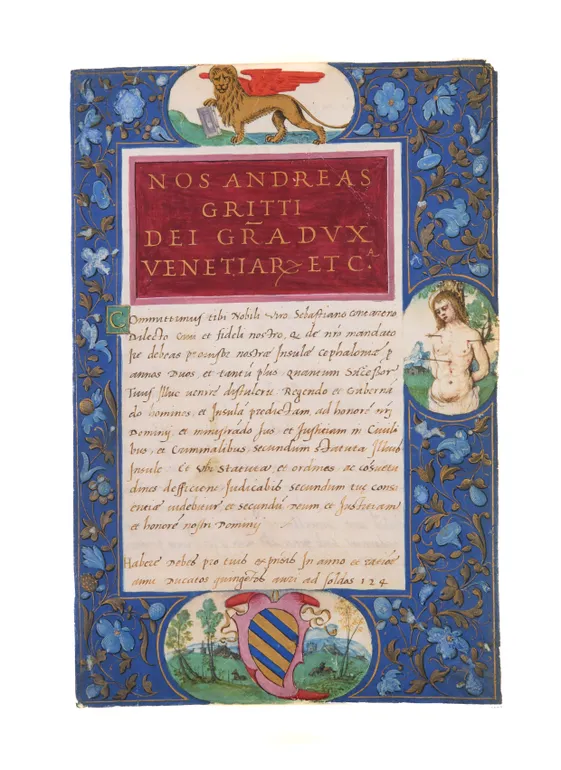 NOS ANDREAS
GRITTI
DEI GR̄A DVX
VENETIAR ET C.A
Committimus tibi Nobili Viro Sebastiano contareno
Dilecto Ciui et fideli nostro, Q de nr̄o mandato
debeas nostræ Insulæ cephaloniæ p
annos Duos et tantū plus quantum Successor
Tuus Illuc venire distulerit Regendo et Guberna
do homines, et Insulā predictam, ad honorē nr̄j
Dominij, et ministrādo Jus, et Justitiam in Ciuili
bus, et Criminalibus, secundum statuta Illius
Insule Et Vbi Statuta, et ordines, ac cōsuetu
dines defficient, Judicabis secundum tuc cons
cientiæ videbitur et secundū Deum et Justitiam
et honorē nostri Dominij
Habere Debes pro tuis expēsis In anno et ratiōe
anni Ducatos quingētos auri ad soldos 124